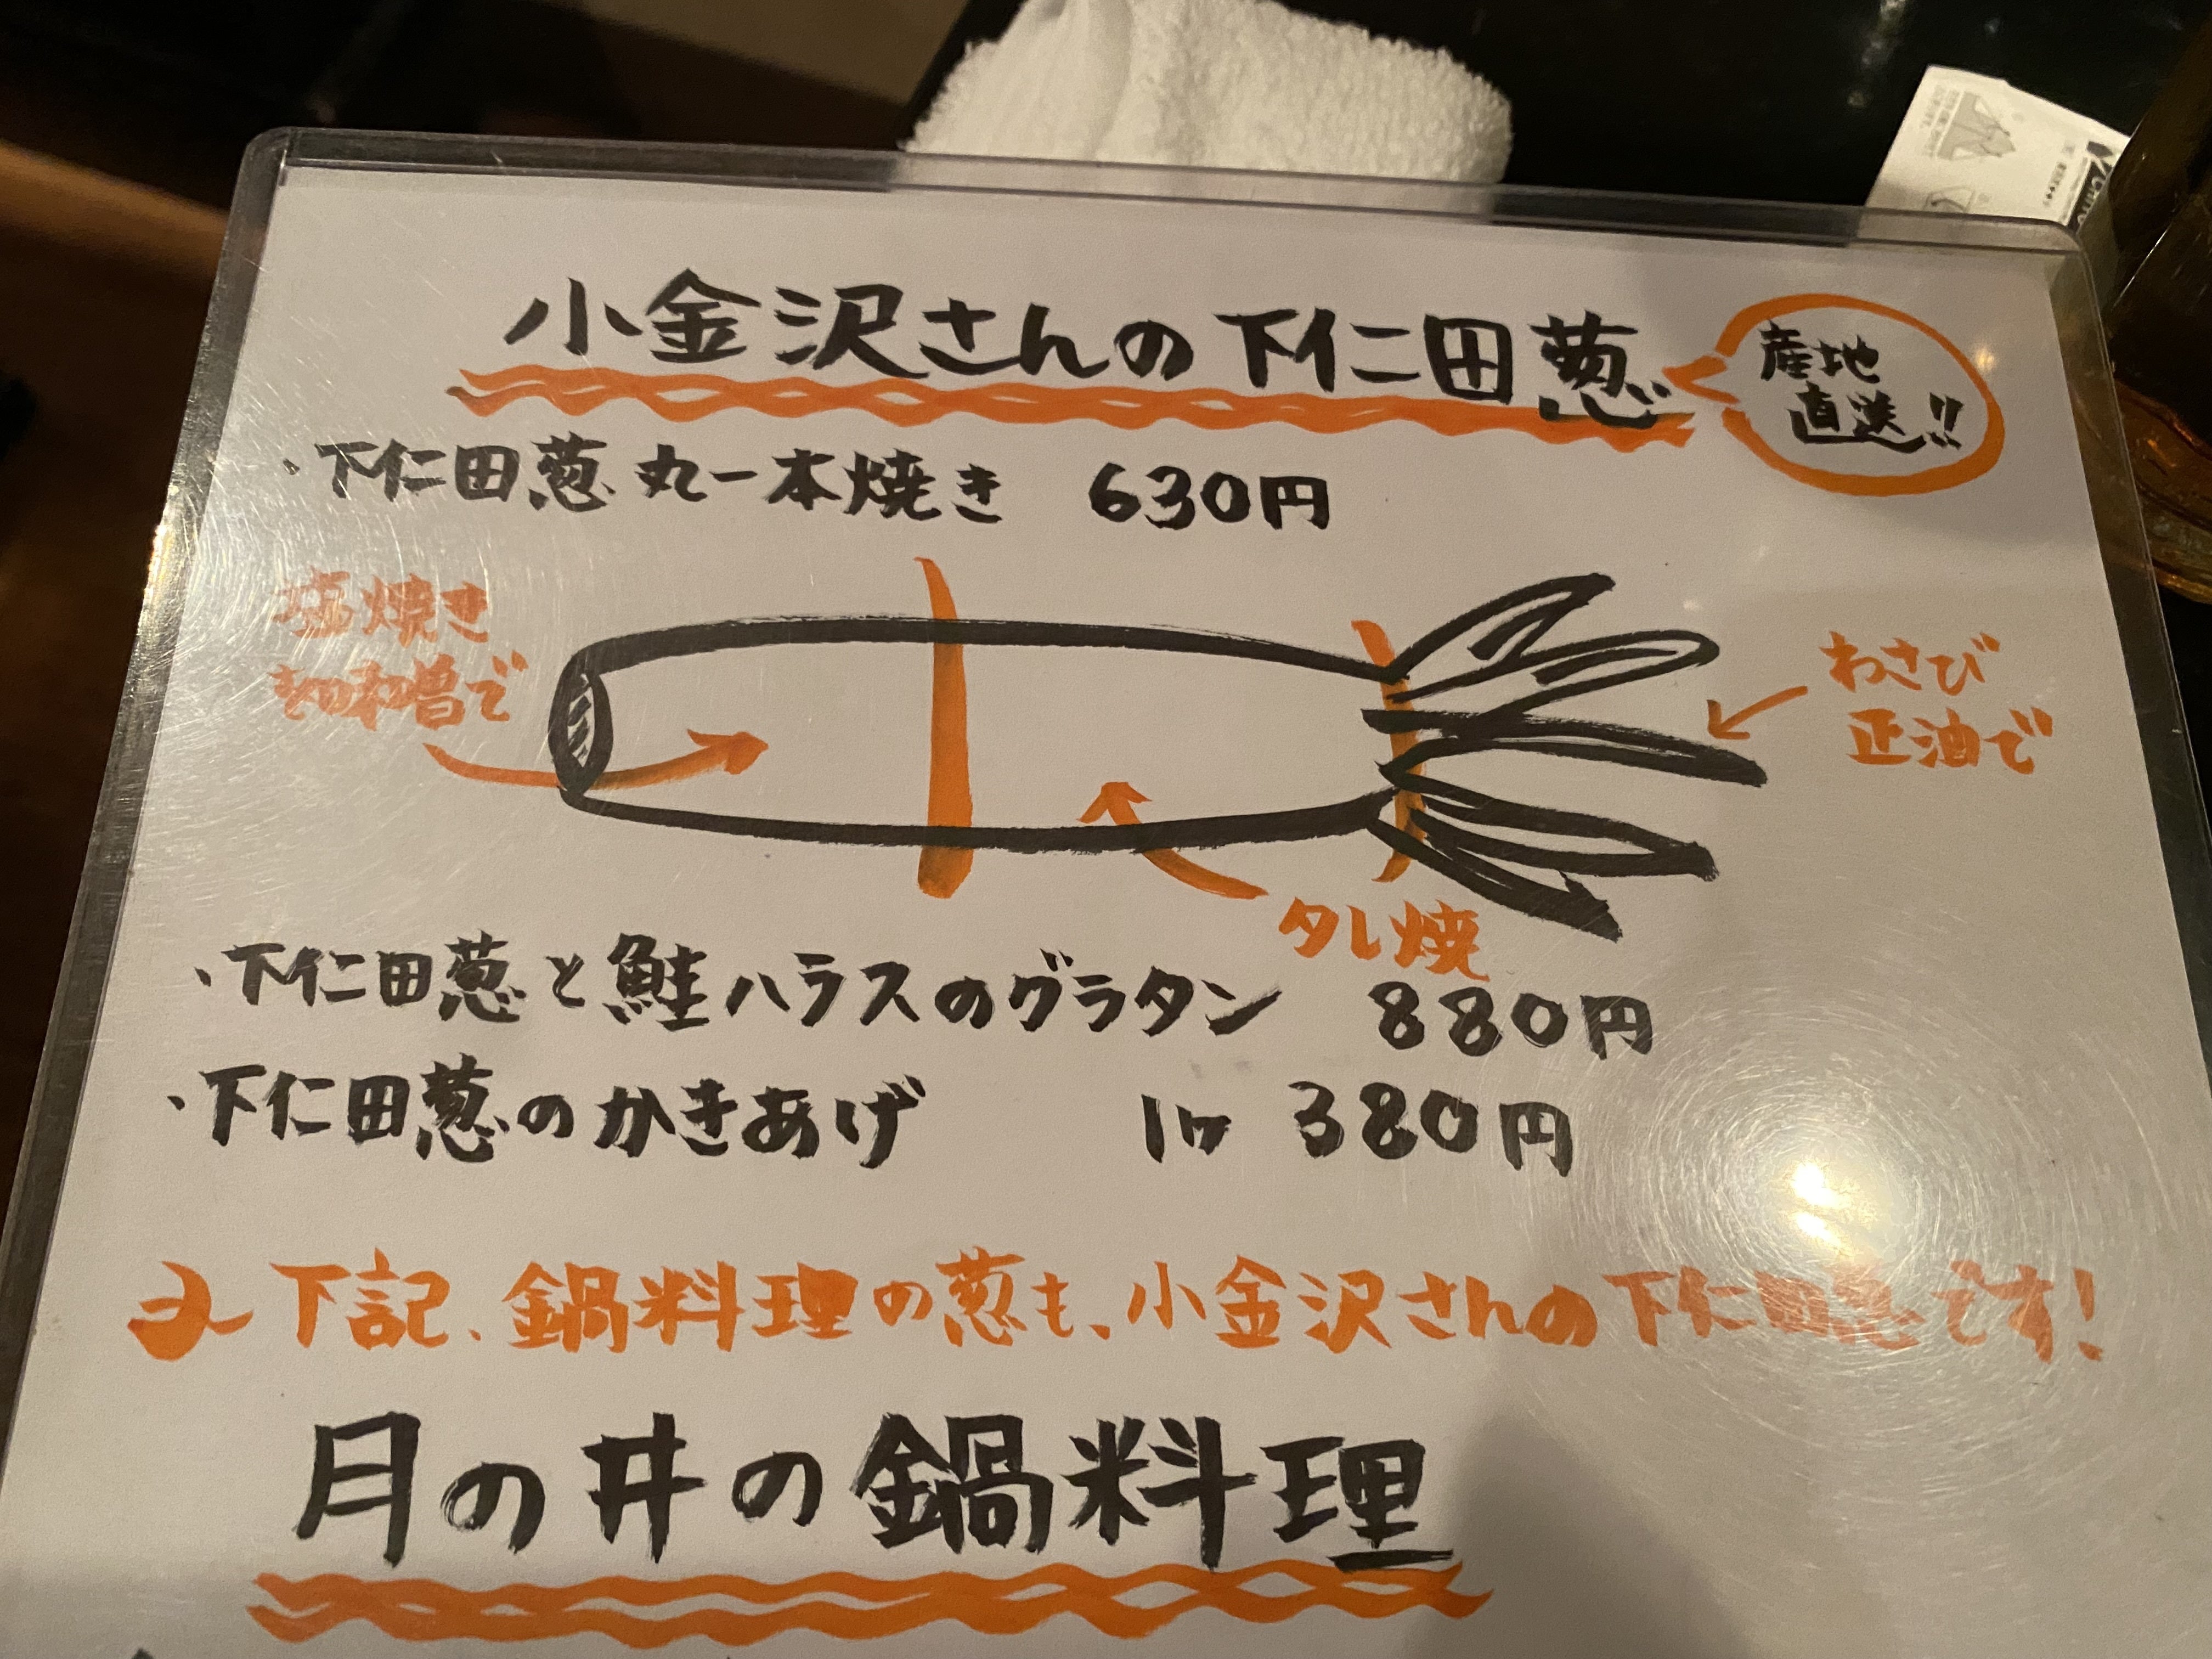 小金沢さんの下仁田葱
産地
直送!!
・下仁田葱 丸一本焼き 630円
塩焼き
味噌で
わさび
正油で
タレ焼
・下仁田葱と鮭ハラスのグラタン 880円
・下仁田葱のかきあげ 1ヶ 380円
下記、鍋料理の葱も、小金沢さんの下仁田葱です!
月の井の鍋料理